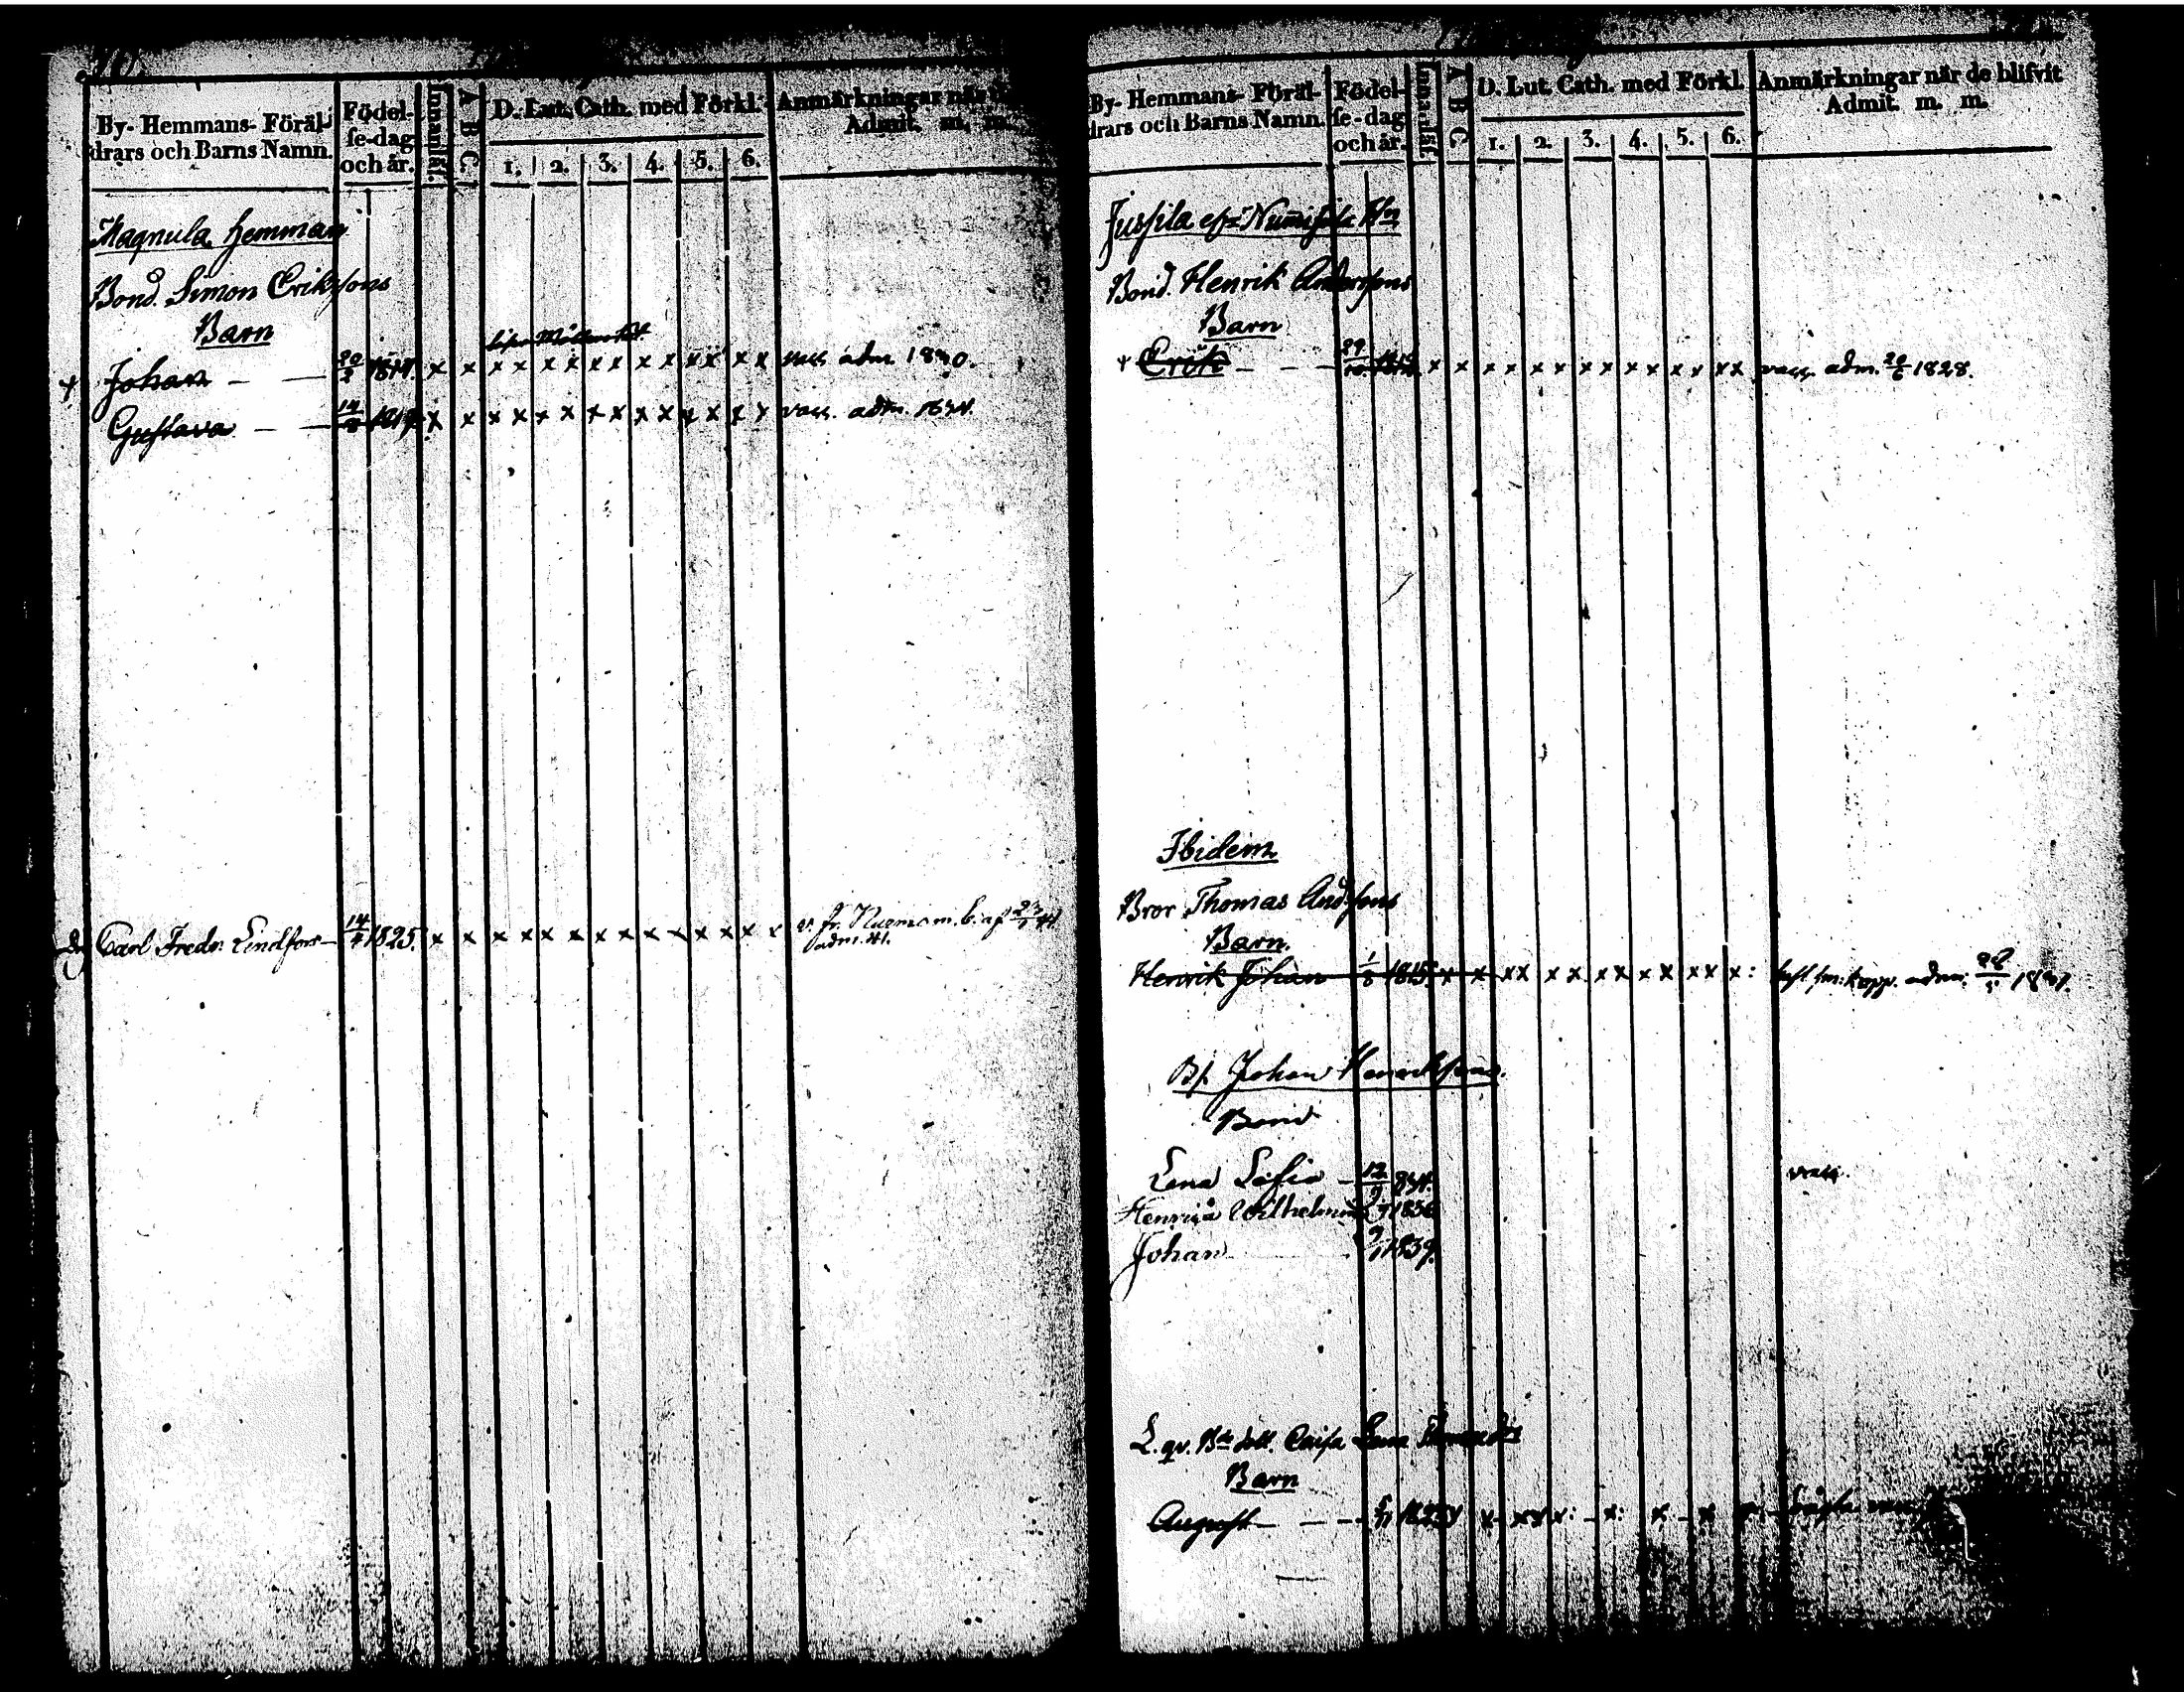 By- Hemmans- Föräl-
drars och Barns Namn.
Födel-
se-dag
och år.
Innanläs.
A B C.
D. Lut. Cath. med Förkl.
1. 2. 3. 4. 5. 6.
Anmärkningar när
Admit. m. m.
Magnula Hemman
Bond. Simon Eriksons
Barn
Johan — — 20/2 x x x x x x x x x x x x x x adm. 1830.
Gustava — — x x x x x x x x x x x x x x vacc. adm. 1834.
Carl Fredr. Lindfors — 14/4 1825. x x x x x x x x x x x x x x
adm. 41.
By- Hemmans- Föräl-
drars och Barns Namn.
Födel-
se-dag
och år.
Innanläs.
A B C
D. Lut. Cath. med Förkl.
1. 2. 3. 4. 5. 6.
Anmärkningar när de blifvit
Admit. m. m.
Jussila
Bond. Henrik Anderssons
Barn
Erik — — — 29/10 x x x x x x x x x x x x x x vacc. adm. 29/6 1828.
Ibidem
Bror Thomas And:sons
Barn.
Henrik Johan 1/8 1815. x x x x x x x x x x x x x : adm. 1831.
Johan Henrikssons.
Lena Sofia — 12/9 834. vacc.
Henrica Wilhelmina 1836
Johan 1839.
Caisa Lena
Barn
August — — —